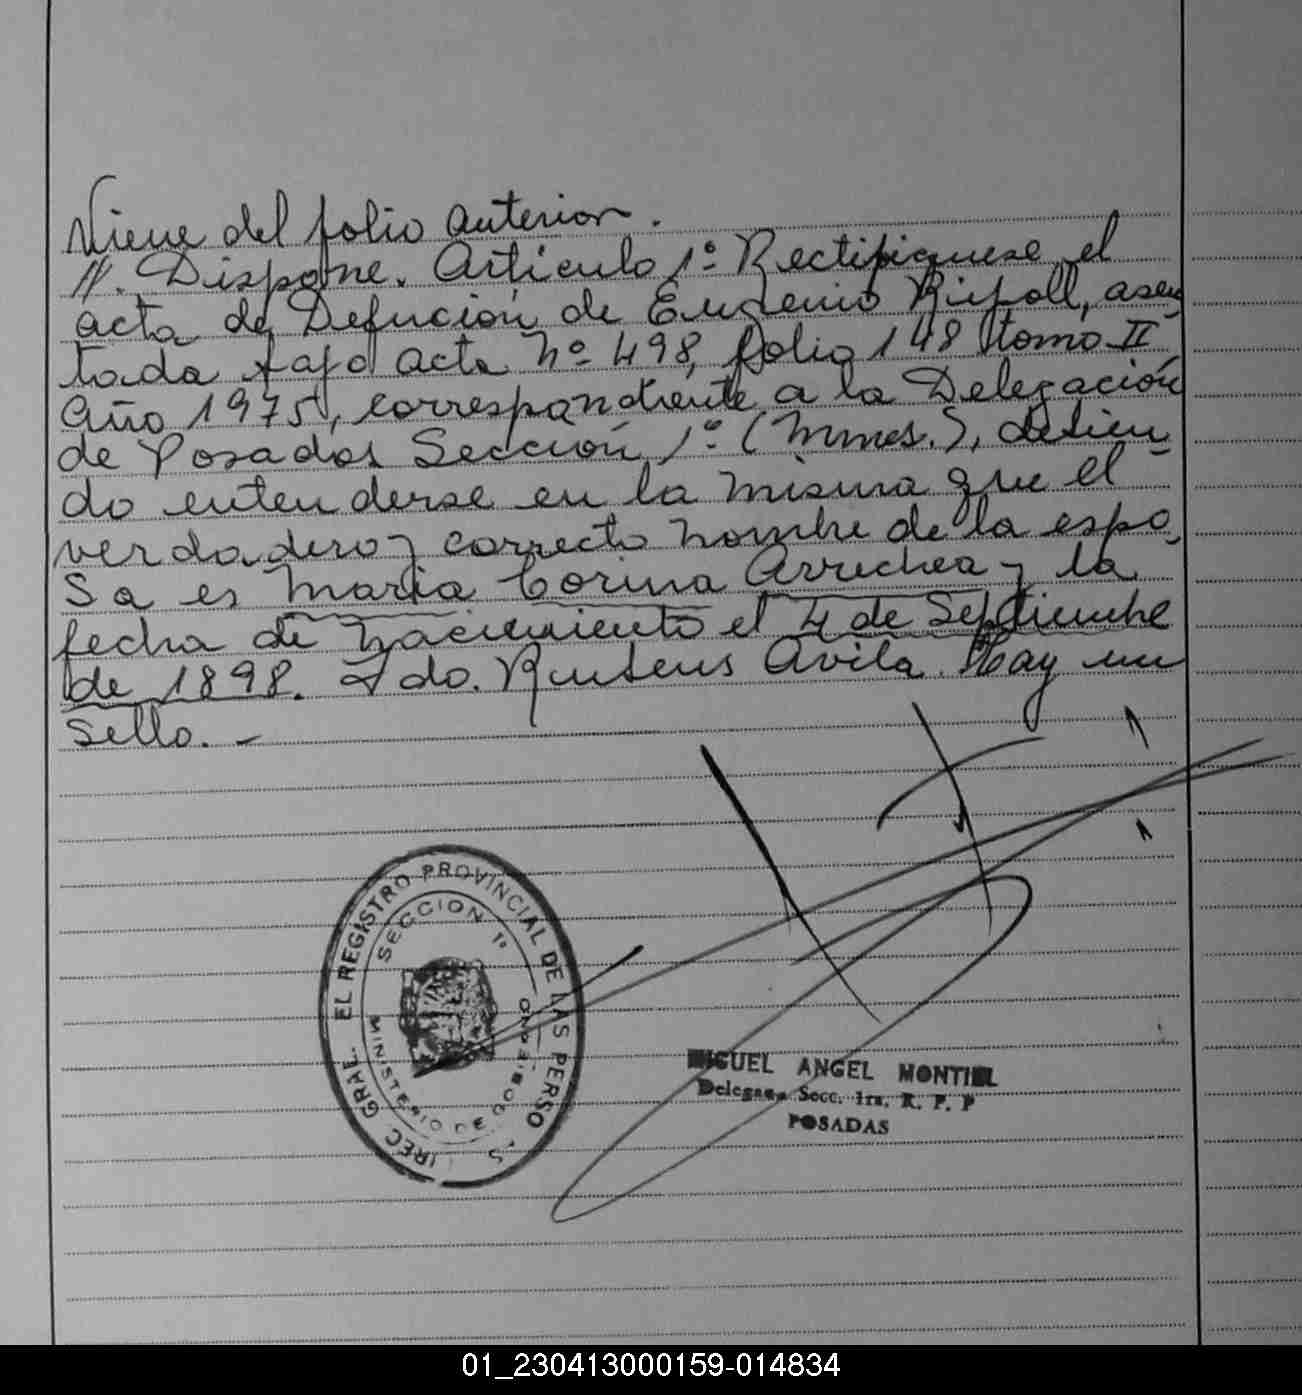 Viene del folio anterior.
//. Dispone. Artículo 1º Rectifíquese el
acta de Defunción de Eugenio Ripoll, asen
tada bajo acta Nº 498, folio 148 tomo II
Año 1975, correspondiente a la Delegación
de Posadas Sección 1º (Mnes.), debien
do entenderse en la misma que el
verdadero y correcto nombre de la espo
sa es María Corina Arrechea y la
fecha de nacimiento el 4 de Septiembre
de 1898. Fdo. Rubens Avila. Hay un
sello. -
IREC. GRAL. EL REGISTRO PROVINCIAL DE LAS PERSO S
SECCION 1º
MINISTERIO DE GOBIERNO
MIGUEL ANGEL MONTIEL
Delegado Secc. 1ra. R. P. P
POSADAS
01_230413000159-014834